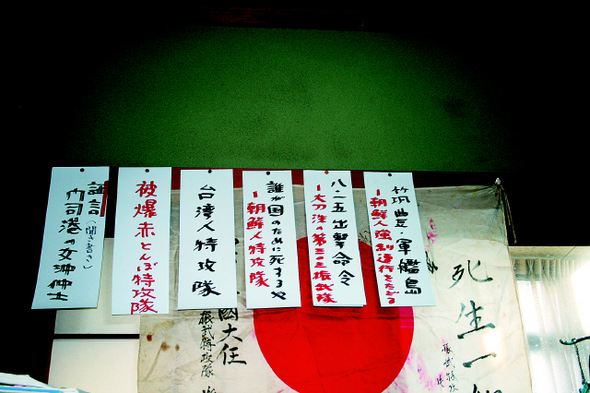 死生一
振武特攻隊
筑豊・軍艦島
ー朝鮮人強制連行をたどる
八・一五出撃命令
ー大刀洗の第 振武隊
誰が国のために死するや
ー朝鮮人特攻隊
台湾人特攻隊
被爆赤とんぼ特攻隊
証言(聞き書き)
門司港の女沖仲士
國大任
振武特攻隊